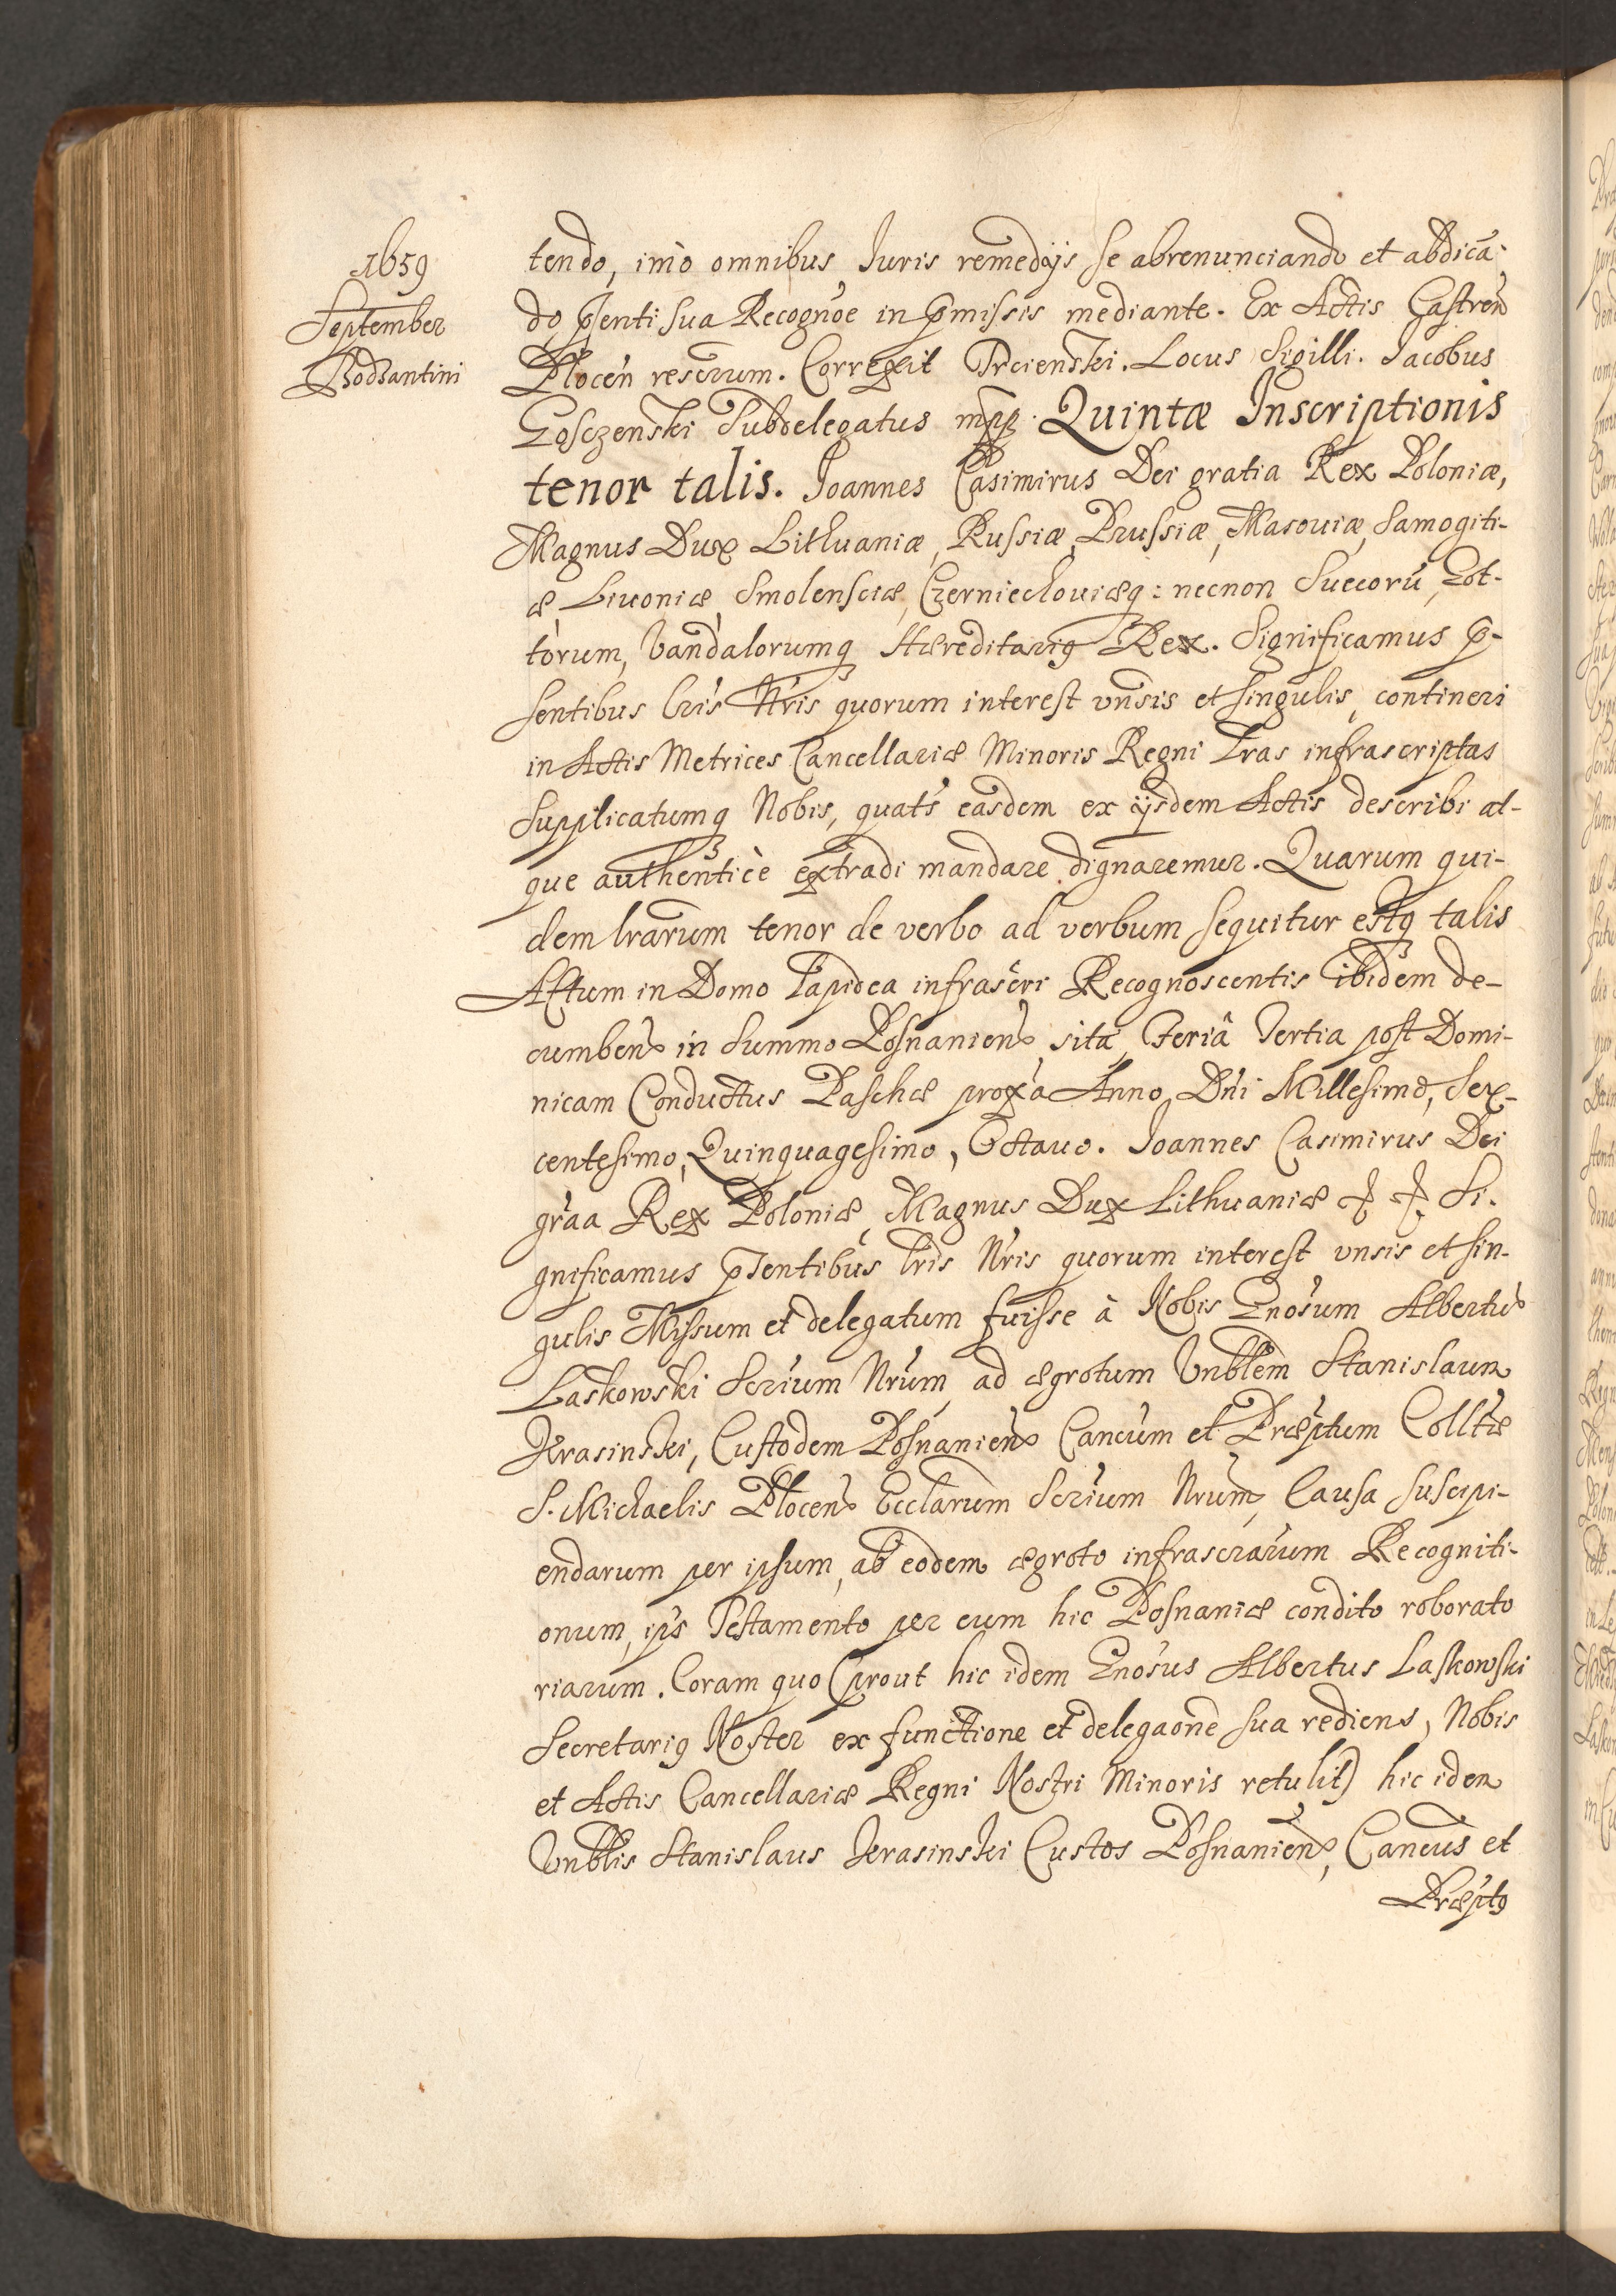 1659
September
Bodzantini
tendo, imò omnibus Iuris remedijs se abrenunciando et abdicā-
do p̄senti sua Recogn̄oe in p̄missis mediante. Ex Actis Castren̄
Plocen̄ rescrum. Correxit Locus Sigilli. Iacobus
Gosczenski Subdelegatus mpp. Quintæ Inscriptionis
tenor talis. Joannes Casimirus Dei gratia Rex Poloniæ,
Magnus Dux Lithuaniæ, Russiæ, Prussiæ, Masouiæ, Samogiti-
æ, Livoniæ, Smolensciæ, Czerniechouiæq: necnon Suecorū, Got-
torum, Vandalorumq Hæreditarig Rex. Significamus p̄-
sentibus lr̄is N̄ris quorum interest vn̄sis et singulis, contineri
in Actis Metrices Cancellariæ Minoris Regni Lr̄as infrascriptas
Supplicatumq Nobis, quat̄s easdem ex ijsdem Actis describi at-
que authenticè extradi mandare dignaremur. Quarum qui-
dem lr̄arum tenor de verbo ad verbum sequitur estq talis
Actum in Domo Lapidea infrascri Recognoscentis ibidem de-
cumben̄ in Summo Posnanien̄ sita, Feriâ Tertia post Domi-
nicam Conductus Paschæ prox̄a Anno Dn̄i Millesimo, Sex-
centesimo, Quinquagesimo, Octauo. Joannes Casimirus Dei
gr̄aa Rex Poloniæ, Magnus Dux Lithuaniæ &. &. Si-
gnificamus p̄sentibus lr̄is N̄ris quorum interest vnsis et sin-
gulis Missum et delegatum fuisse à Nobis Gnosum Albertū
Laskowski Scrium Nrum, ad ægrotum Vnblem Stanislaum
Krasinski, Custodem Posnanien̄ Cancum et Præptum Colltæ
S. Michaelis Plocen̄ Ecclarum Scrium Nrum, Causa suscipi-
endarum per ipsum, ab eodem ægroto infrascrarum Recogniti-
onum, ip̄s Testamento per eum hic Posnaniæ condito roborato
riarum. Coram quo (prout hic idem Gnosus Albertus Laskowski
Secretarig Noster ex functione et delegaone sua rediens, Nobis
et Actis Cancellariæ Regni Nostri Minoris retulit) hic idem
Vnblis Stanislaus Krasinski Custos Posnanien̄, Cancus et
Præptg